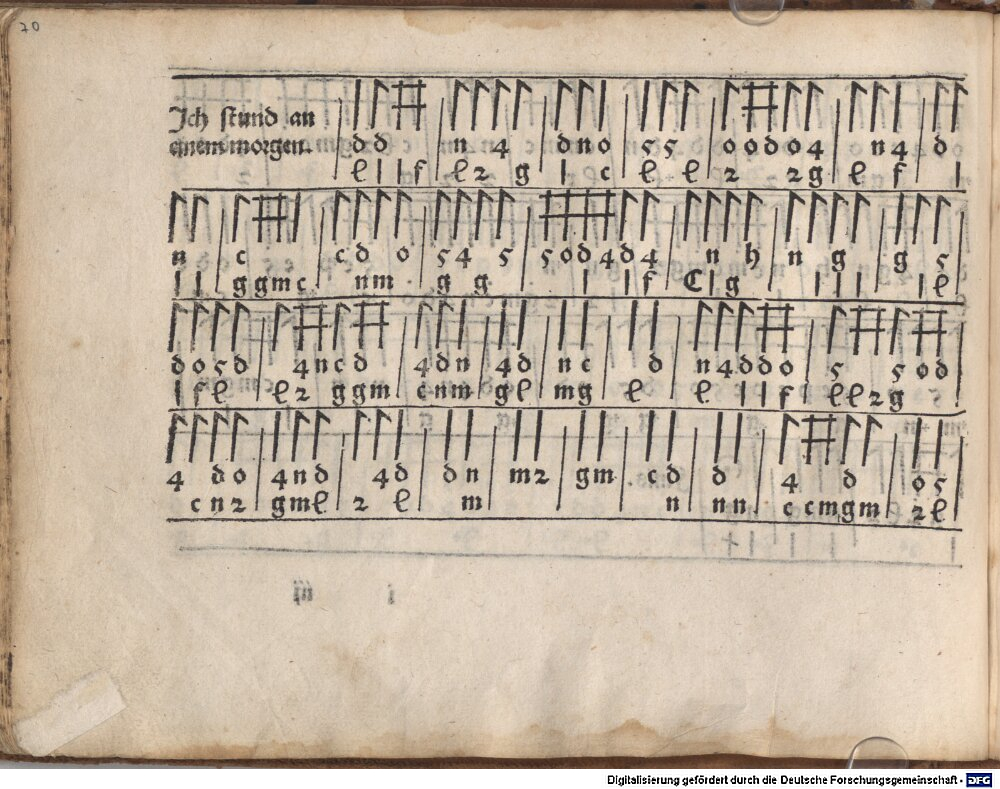 70
Ich stund an
einem morgen.
d d n 4 d n o 5 5 o o d o 4 n 4 d
l 1 1 f l 2 g 1 c l l 2 2 g l f 1
n c c d o 5 4 5 5 o d 4 d 4 n h n g g 5
1 1 g g m c n m g g 1 1 f C 1 g 1 1 1 1 l
d o 5 d 4 n c d 4 d n 4 d n c d n 4 d d o 5 5 o d
1 f l l 2 g g m c n m g l m g l l 1 1 f l l 2 g
4 d o 4 n d 4 d d n m 2 g m c d d 4 d o 5
c n 2 g m l 2 l m n n n c c m g m 2 l
Digitalisierung gefördert durch die Deutsche Forschungsgemeinschaft - DFG